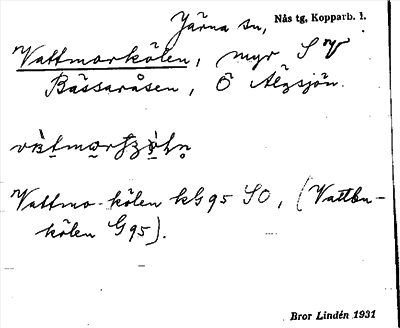 Järna sn, Nås tg, Kopparb. l.
Vattmorkölen, myr S
Bässaråsen, Ö Älgsjön.
Vattmo-kölen kG95 SO, (Vattbu-
kölen G95).
Bror Lindén 1931